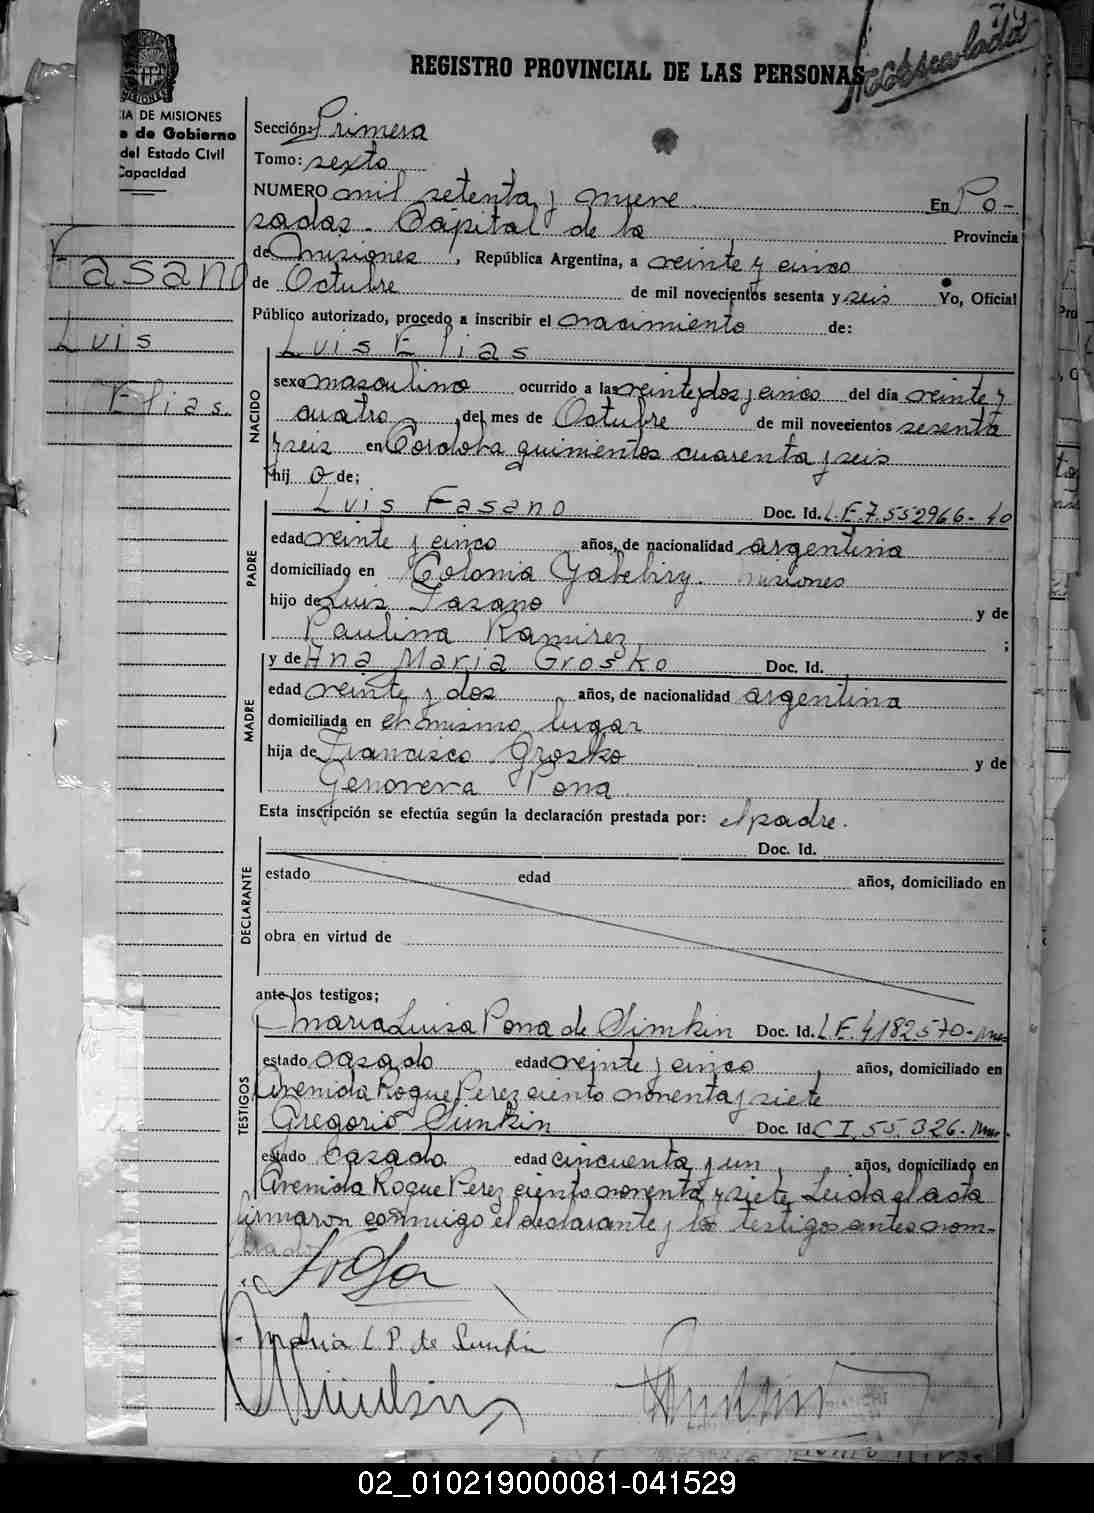 REGISTRO PROVINCIAL DE LAS PERSONAS
IA DE MISIONES
de Gobierno
del Estado Civil
Capacidad
Sección: Primera
Tomo: sexto
NUMERO mil setenta y nueve En Po-
sadas. Capital de la Provincia
de Misiones, República Argentina, a veinte y cinco
de Octubre de mil novecientos sesenta y seis Yo, Oficial
Público autorizado, procedo a inscribir el nacimiento de:
Fasano
Luis
Elias
Luis Elias
NACIDO
sexo masculino ocurrido a las veinte y dos y cinco del día veinte y
cuatro del mes de Octubre de mil novecientos sesenta
y seis en Cordoba quinientos cuarenta y seis
hij o de;
PADRE
Luis Fasano Doc. Id. L.E.7.552966-40
edad veinte y cinco años, de nacionalidad argentina
domiciliado en Colonia Gabebiry. Misiones
hijo de Luis Fasano y de
Paulina Ramirez ;
MADRE
y de Ana Maria Grosko Doc. Id.
edad veinte y dos años, de nacionalidad argentina
domiciliada en el mismo lugar
hija de Francisco Grosko y de
Genoveva Pona.
Esta inscripción se efectúa según la declaración prestada por: el padre.
DECLARANTE
Doc. Id.
estado edad años, domiciliado en
obra en virtud de
ante los testigos;
TESTIGOS
Maria Luisa Pona de Simkin Doc. Id. L.E.4182570-
estado casado edad veinte y cinco, años, domiciliado en
Avenida Roque Perez ciento noventa y siete
Gregorio Simkin Doc. Id C I. 55.326-
estado casado edad cincuenta y un, años, domiciliado en
Avenida Roque Perez ciento noventa y siete Leida el acta
firmaron conmigo el declarante y los testigos antes nom-
brados
Maria L P. de Simkin
02_010219000081-041529